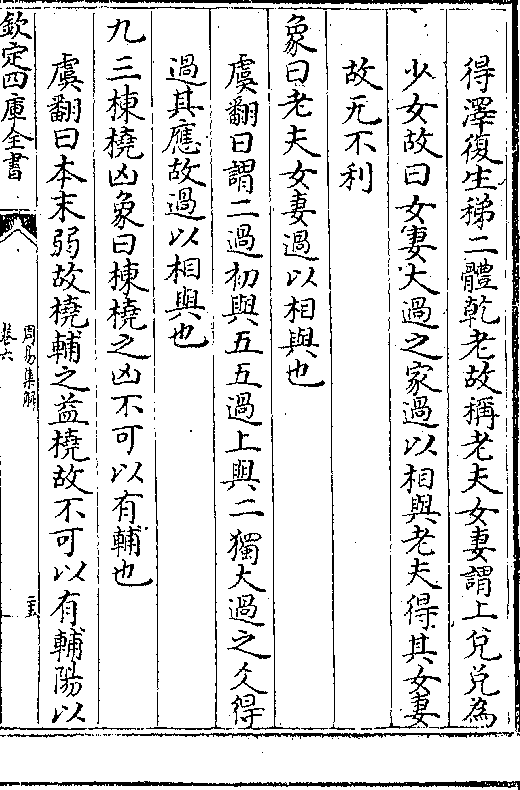 得澤復生稊二體乾老故稱老夫女妻謂上兌兌為
少女故曰女妻大過之家過以相與老夫得其女妻
故无不利
象曰老夫女妻過以相與也
虞翻曰謂二過初與五五過上與二獨大過之爻得
過其應故過以相與也
九三棟橈凶象曰棟橈之凶不可以有輔也
虞翻曰本末弱故橈輔之益橈故不可以有輔陽以
欽定四庫全書
周易集解
卷六